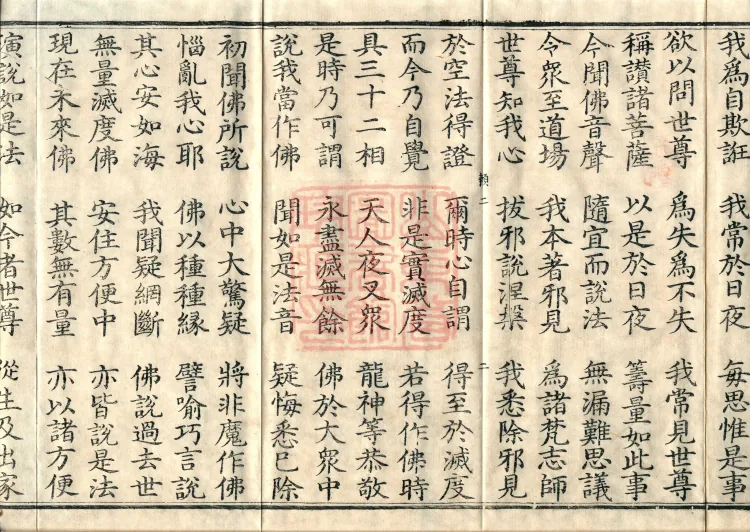 我為自欺誑　我常於日夜　每思惟是事
欲以問世尊　為失為不失　我常見世尊
稱讚諸菩薩　以是於日夜　籌量如此事
今聞佛音聲　隨宜而說法　無漏難思議
令眾至道場　我本著邪見　為諸梵志師
世尊知我心　拔邪說涅槃　我悉除邪見
二　二
於空法得證　爾時心自謂　得至於滅度
而今乃自覺　非是實滅度　若得作佛時
具三十二相　天人夜叉眾　龍神等恭敬
是時乃可謂　永盡滅無餘　佛於大眾中
說我當作佛　聞如是法音　疑悔悉已除
初聞佛所說　心中大驚疑　將非魔作佛
惱亂我心耶　佛以種種緣　譬喻巧言說
其心安如海　我聞疑網斷　佛說過去世
無量滅度佛　安住方便中　亦皆說是法
現在未來佛　其數無有量　亦以諸方便
演說如是法　如今者世尊　從生及出家